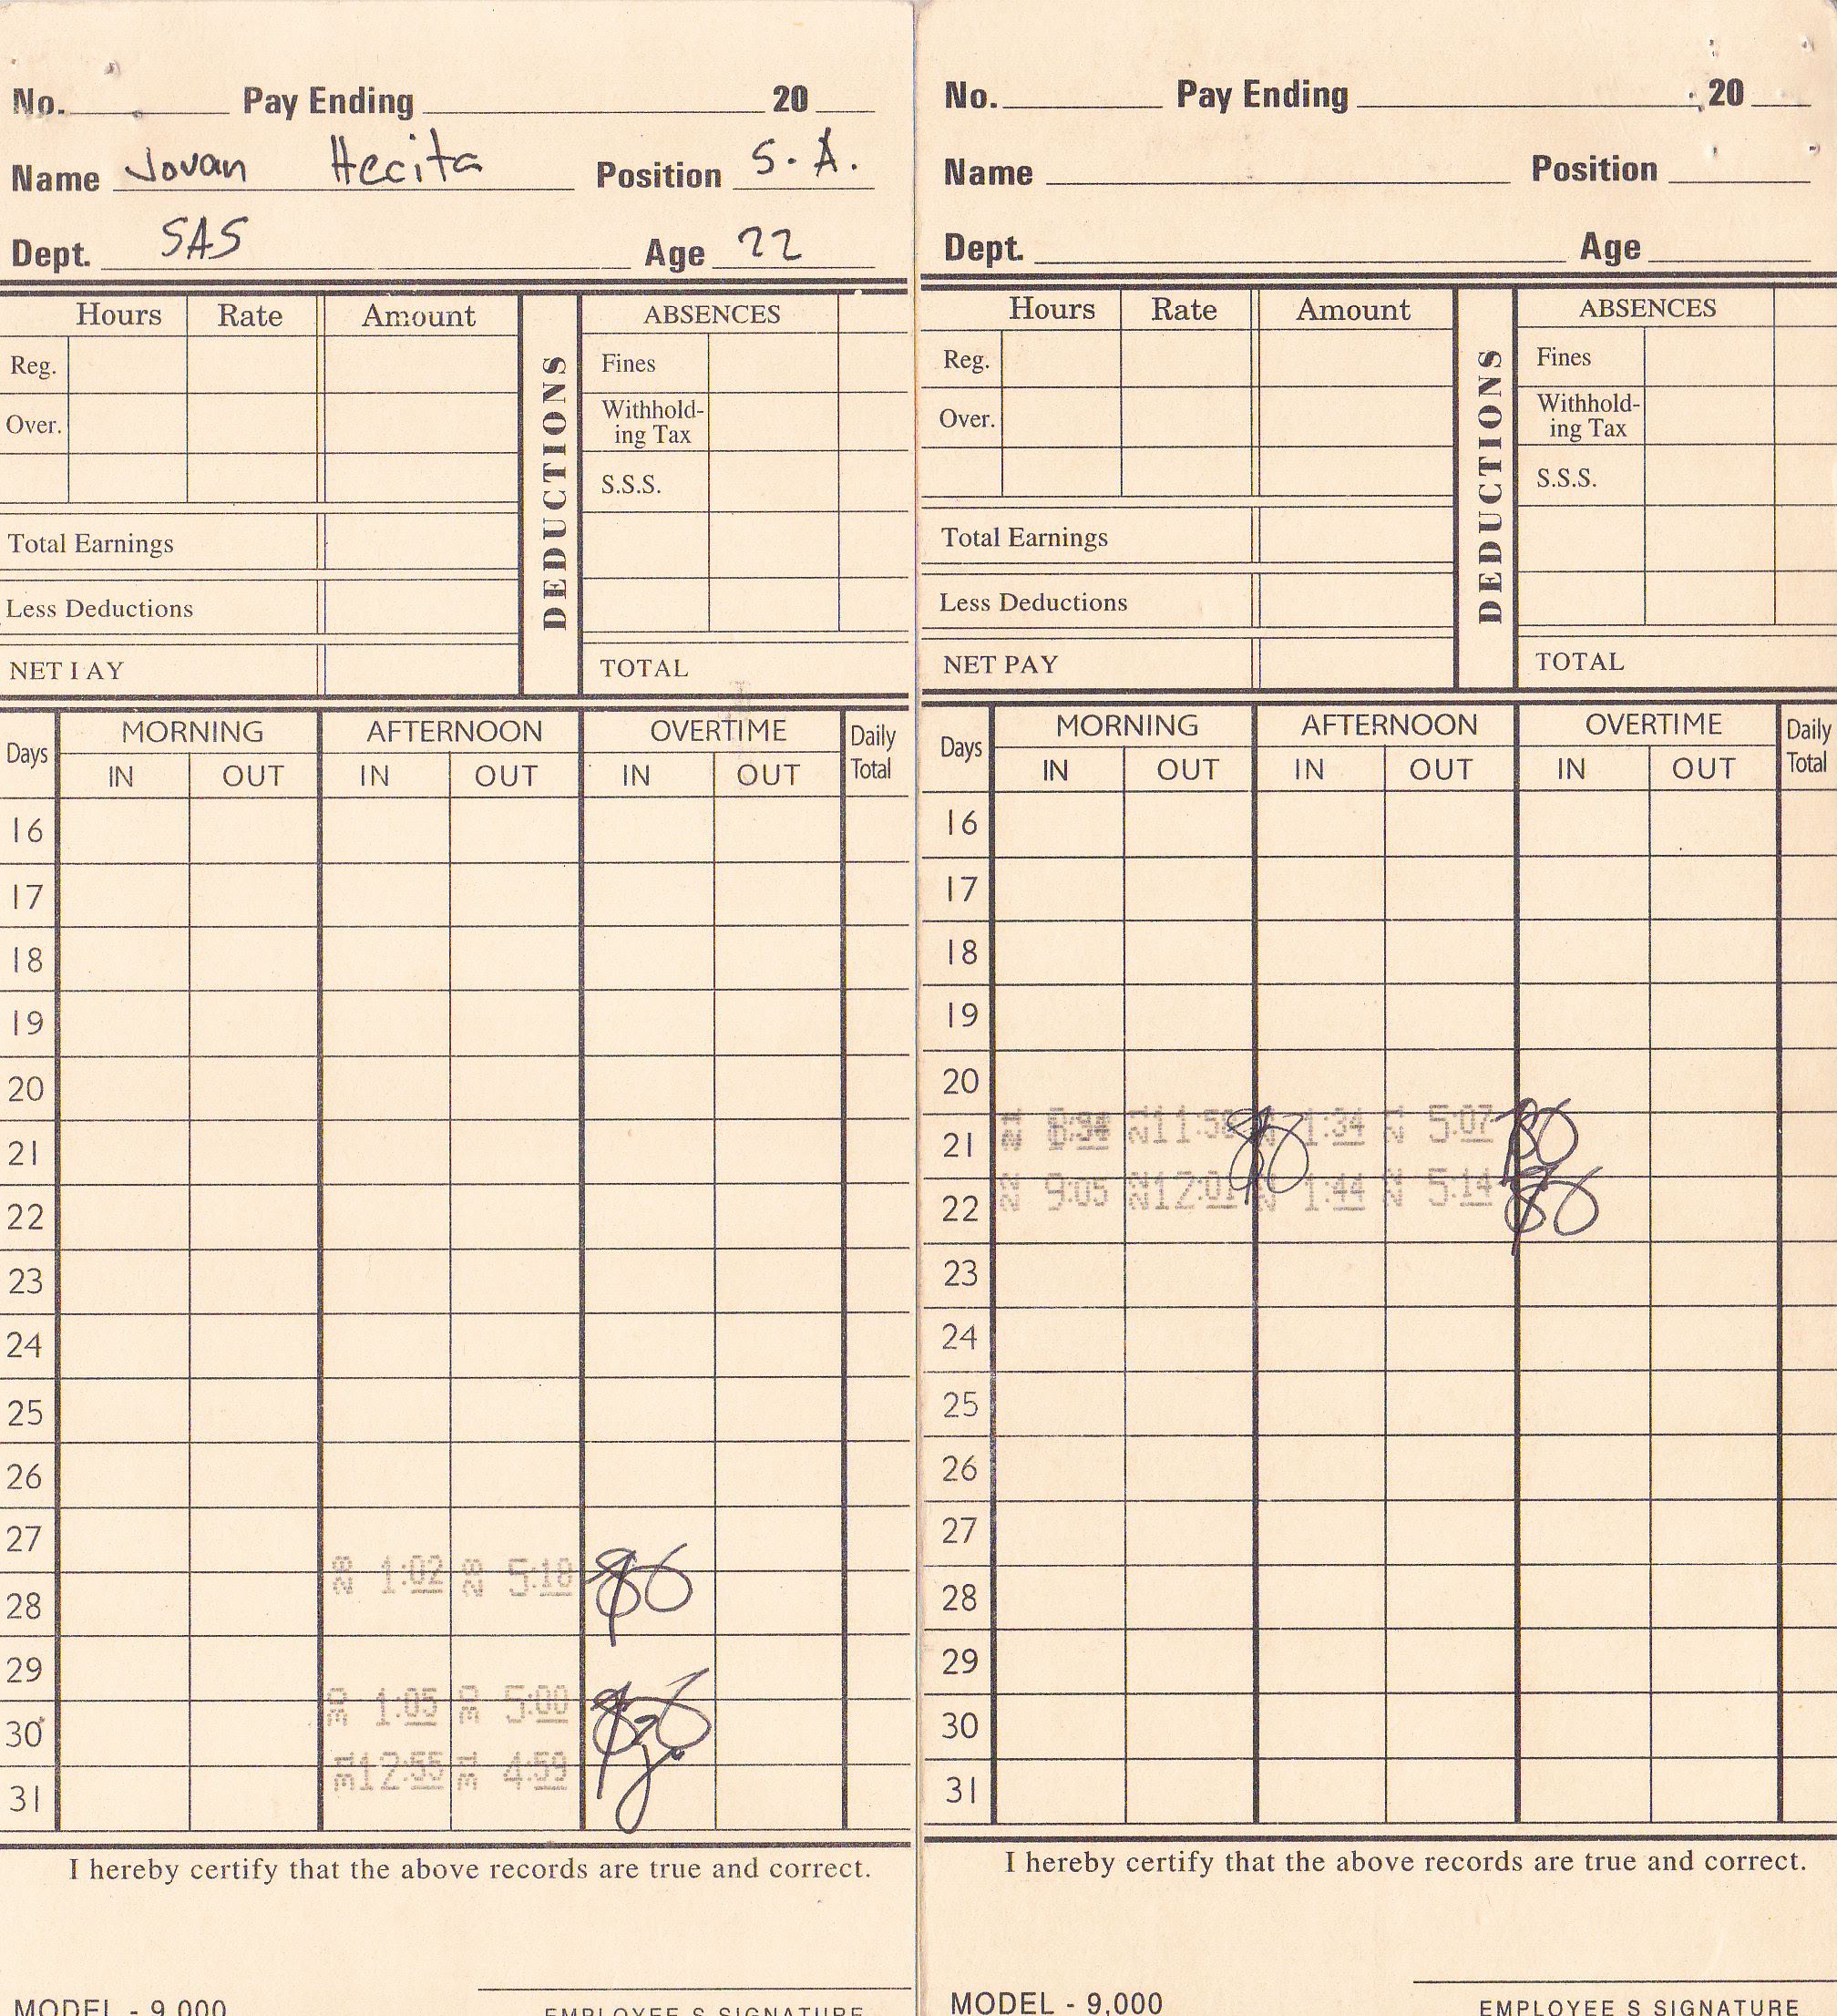 No. Pay Ending 20
Name Jovan Hecita Position S.A.
Dept. SAS Age 22
Hours Rate Amount DEDUCTIONS ABSENCES
Reg. Fines
Over. Withhold-
ing Tax
S.S.S.
Total Earnings
Less Deductions
NET I AY TOTAL
Days MORNING AFTERNOON OVERTIME Daily
Total
IN OUT IN OUT IN OUT
16
17
18
19
20
21
22
23
24
25
26
27
1:02 5:18
28
29
1:05 5:00
30
12:55 4:59
31
I hereby certify that the above records are true and correct.
MODEL - 9,000 EMPLOYEE S SIGNATURE
No. Pay Ending 20
Name Position
Dept. Age
Hours Rate Amount DEDUCTIONS ABSENCES
Reg. Fines
Over. Withhold-
ing Tax
S.S.S.
Total Earnings
Less Deductions
NET PAY TOTAL
Days MORNING AFTERNOON OVERTIME Daily
Total
IN OUT IN OUT IN OUT
16
17
18
19
20
21 1:34 5:07
22 9:05 1:44 5:14
23
24
25
26
27
28
29
30
31
I hereby certify that the above records are true and correct.
MODEL - 9,000 EMPLOYEE S SIGNATURE